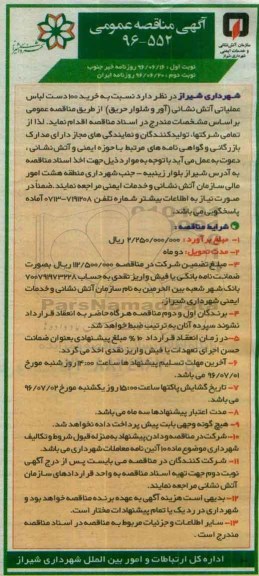 آگهی مناقصه عمومی
۹۶-۵۵۲
سازمان آتش نشانی
و خدمات ایمنی
شهرداری شیراز
نوبت اول : ۹۶/۰۶/۱۴ روزنامه خبر جنوب
نوبت دوم : ۹۶/۰۶/۲۰ روزنامه ایران
شهرداری شیراز در نظر دارد نسبت به خرید ۱۰۰ دست لباس
عملیاتی آتش نشانی (آور و شلوار حریق) از طریق مناقصه عمومی
بر اساس مشخصات مندرج در اسناد مناقصه اقدام نماید. لذا از
تمامی شرکتها، تولیدکنندگان و نمایندگی های مجاز دارای مدارک
بازرگانی و گواهی نامه های مرتبط با حوزه ایمنی و آتش نشانی ،
دعوت به عمل می آید با توجه به موارد ذیل جهت اخذ اسناد مناقصه
به آدرس شیراز بلوار زینبیه - جنب شهرداری منطقه هشت امور
مالی سازمان آتش نشانی و خدمات ایمنی مراجعه نمایند. ضمناً در
صورت نیاز به اطلاعات بیشتر شماره تلفن ۷۱۹۱۲۰۸-۰۷۱۳ آماده
پاسخگویی می باشد.
شرایط مناقصه :
۱- مبلغ برآورد : ۲/۲۵۰/۰۰۰/۰۰۰ ریال
۲- مدت تحویل: دو ماه
۳- مبلغ تضمین شرکت در مناقصه ۱۱۲/۵۰۰/۰۰۰ ریال بصورت
ضمانت نامه بانکی یا فیش واریز نقدی به حساب
بانک شهر شعبه بین الحرمین به نام سازمان آتش نشانی و خدمات
ایمنی شهرداری شیراز
۴- برندگان اول و دوم مناقصه هرگاه حاضر به انعقاد قرارداد
نشوند سپرده آنان به ترتیب ضبط خواهد شد.
۵- در زمان انعقاد قرارداد ۱۰% مبلغ پیشنهادی بعنوان ضمانت
حسن اجرای تعهدات یا فیش واریز نقدی اخذ می گردد.
۶- آخرین مهلت تسلیم پیشنهاد ها ساعت ۱۴:۰۰ روز شنبه مورخ
۹۶/۰۷/۰۱ می باشد.
۷- تاریخ گشایش پاکتها ساعت ۱۵:۰۰ روز یکشنبه مورخ ۹۶/۰۷/۰۲
می باشد.
۸- مدت اعتبار پیشنهادها سه ماه می باشد.
۹- هیچ گونه وجهی بابت پیش پرداخت داده نخواهد شد.
۱۰- شرکت در مناقصه و دادن پیشنهاد به منزله قبول شروط و تکالیف
شهرداری موضوع ماده ۱۰ آئین نامه معاملات شهرداری می باشد.
۱۱- شرکت کنندگان در مناقصه می بایست پس از درج آگهی
نوبت دوم جهت تهیه اسناد مناقصه به واحد قراردادهای سازمان
آتش نشانی مراجعه نمایند.
۱۲- بدیهی است هزینه آگهی به عهده برنده مناقصه خواهد بود و
شهرداری در رد یک یا تمام پیشنهادات مختار است.
۱۳- سایر اطلاعات و جزئیات مربوط به مناقصه در اسناد مناقصه
مندرج است.
اداره کل ارتباطات و امور بین الملل شهرداری شیراز